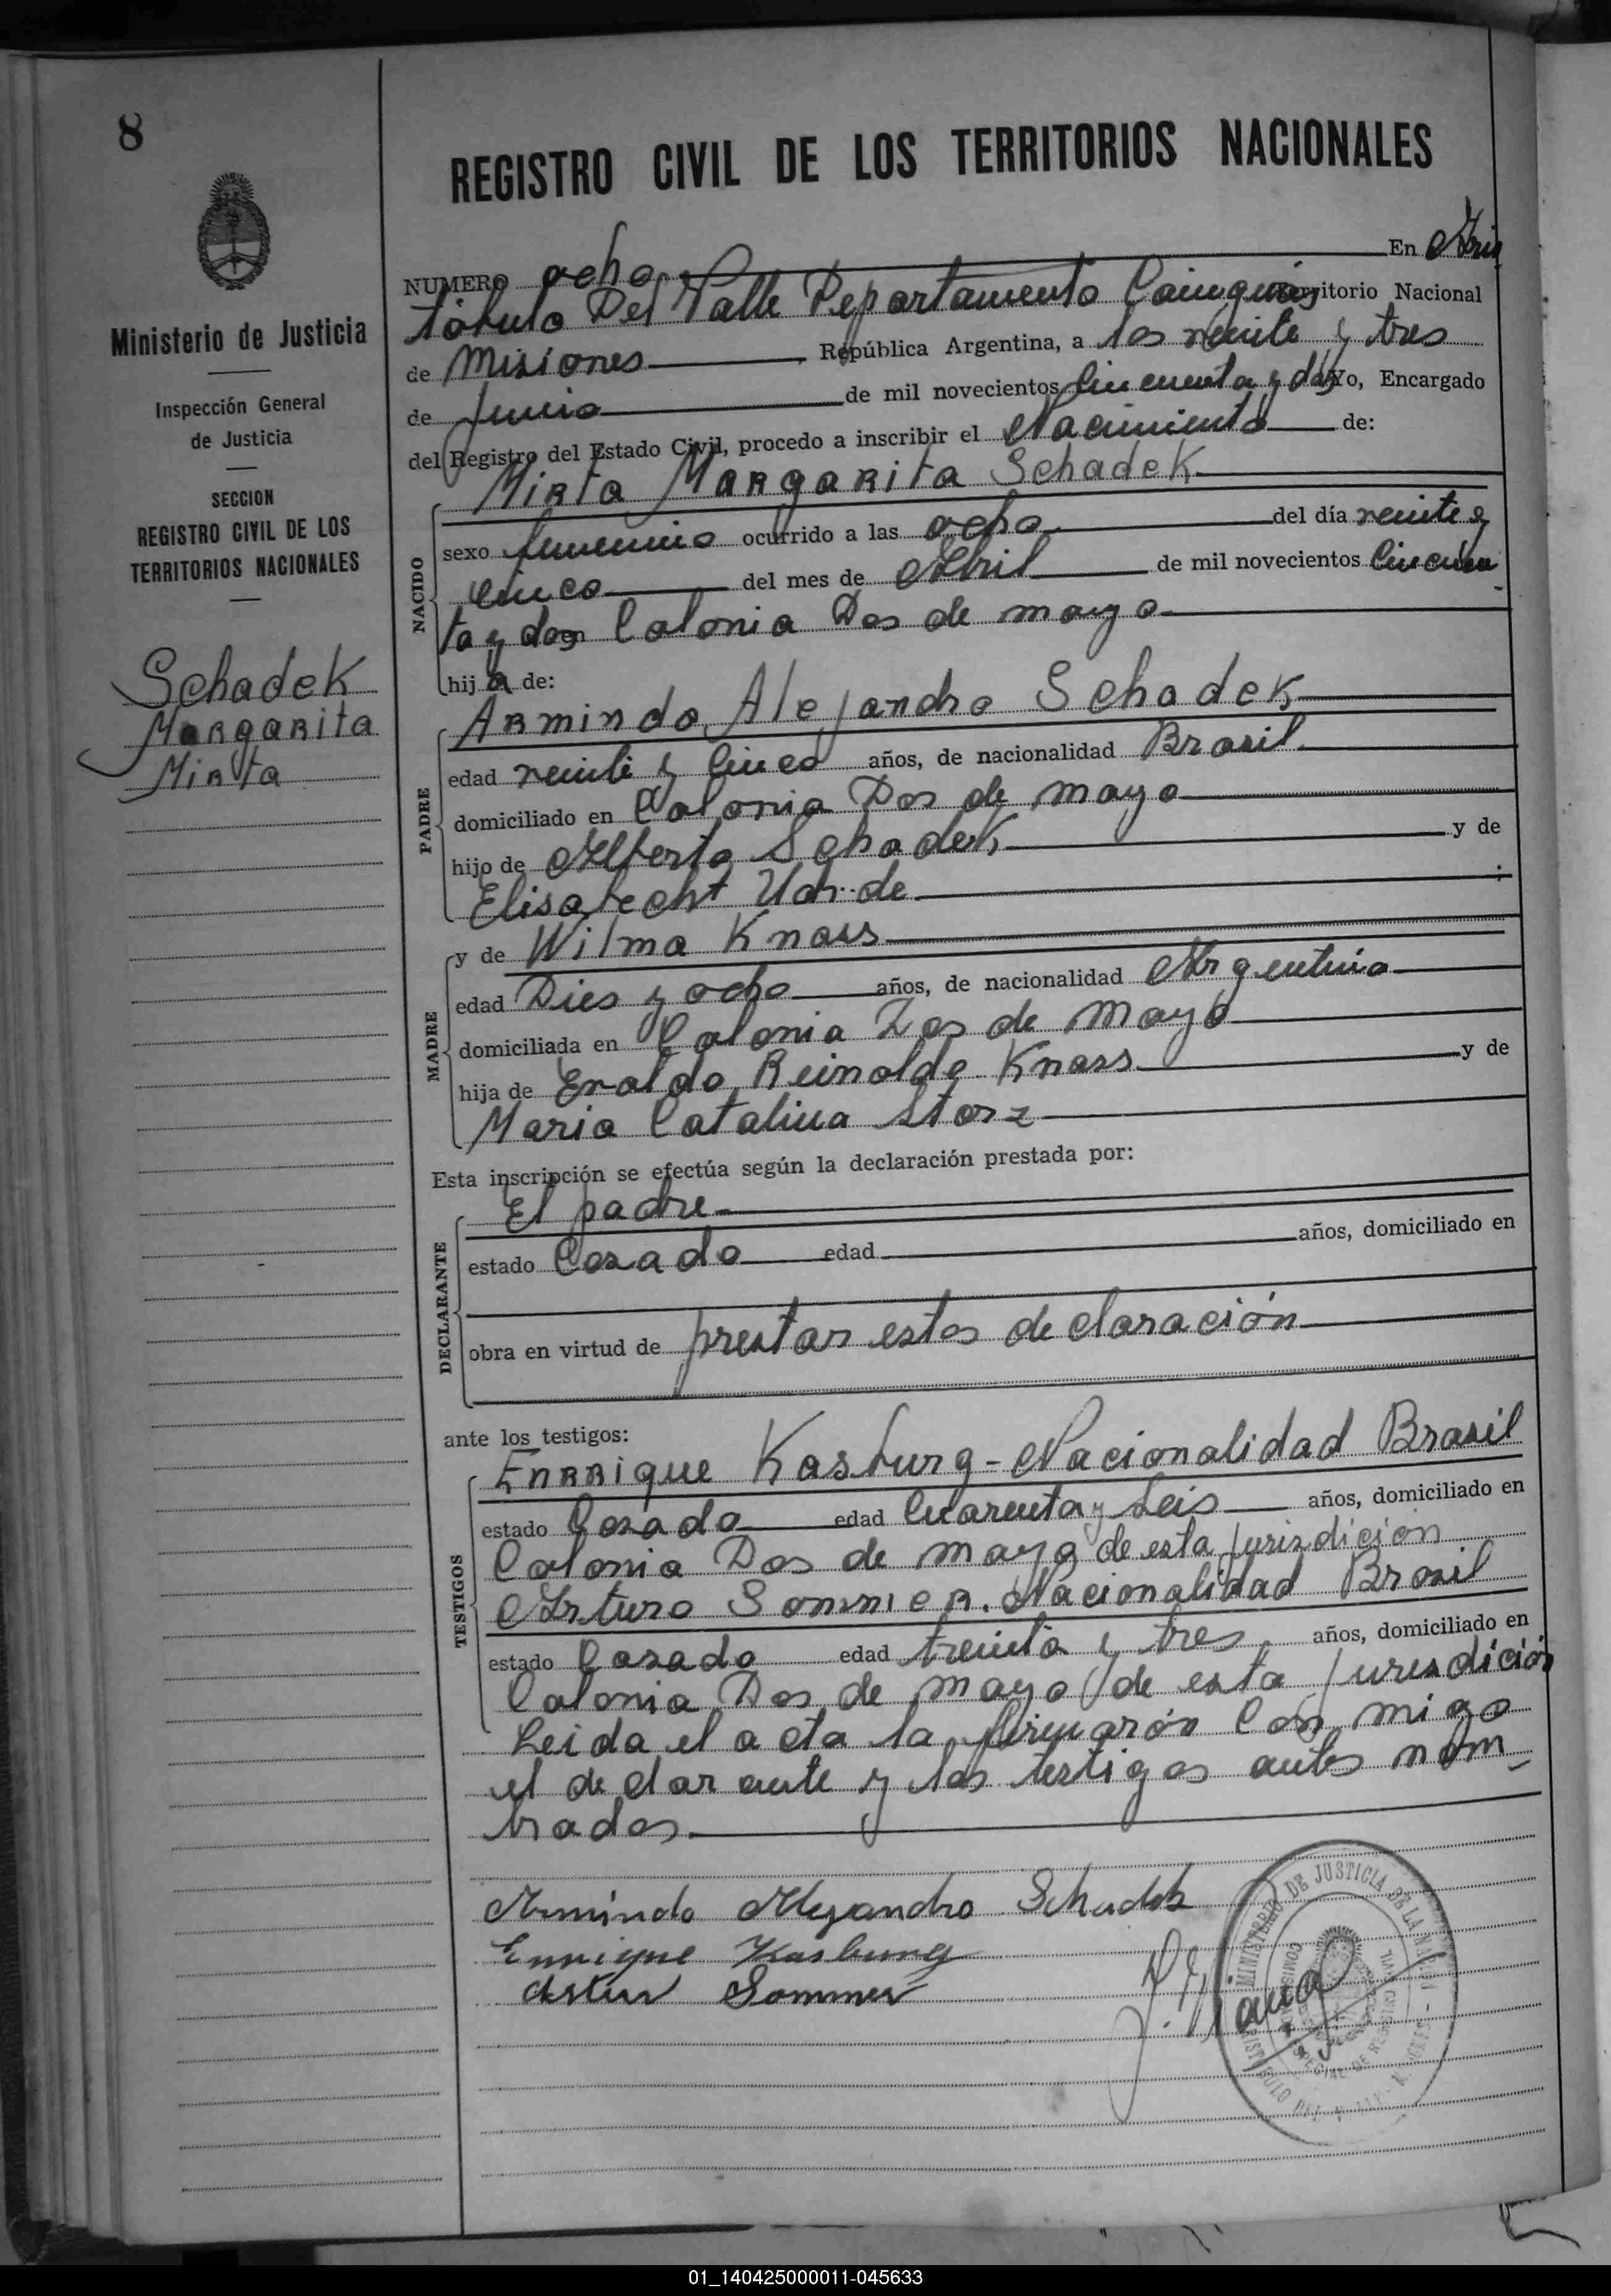 8
REGISTRO CIVIL DE LOS TERRITORIOS NACIONALES
Ministerio de Justicia
Inspección General
de Justicia
SECCION
REGISTRO CIVIL DE LOS
TERRITORIOS NACIONALES
Schadek
Margarita
Mirta
NUMERO ocho En Aris
tóbulo Del Valle Departamento Cainguás Territorio Nacional
de Misiones República Argentina, a los veinte y tres
de Junio de mil novecientos Cincuenta y dos Yo, Encargado
del Registro del Estado Civil, procedo a inscribir el Nacimiento de:
NACIDO
Mirta Margarita Schadek
sexo femenino ocurrido a las ocho del día veinte y
cinco del mes de Abril de mil novecientos Cincuen
ta y dos en Colonia Dos de mayo
hija de:
PADRE
Armindo Alejandro Schadek
edad veinte y Cinco años, de nacionalidad Brasil
domiciliado en Colonia Dos de mayo
hijo de Alberto Schadek y de
Elisabecht
MADRE
y de Wilma Knass
edad Dies y ocho años, de nacionalidad Argentina
domiciliada en Colonia Dos de Mayo
hija de Evaldo Reinoldo Knass y de
Maria Catalina Storz
Esta inscripción se efectúa según la declaración prestada por:
DECLARANTE
El padre
estado Casado edad años, domiciliado en
obra en virtud de prestar estos declaración
ante los testigos:
TESTIGOS
Enrrique Kasburg - Nacionalidad Brasil
estado Casado edad Cuarenta y Seis años, domiciliado en
Colonia Dos de mayo de esta jurisdicion
Arturo Sommer. Nacionalidad Brasil
estado Casado edad treinta y tres años, domiciliado en
Colonia Dos de mayo de esta jurisdición
Leida el acta la firmarón Con migo
el declarante y los testigos antes nom
brados
Armindo Alejandro Schadek
Enrrique Kasburg
Artur Sommer
MINISTERIO DE JUSTICIA DE LA NACION
01_140425000011-045633